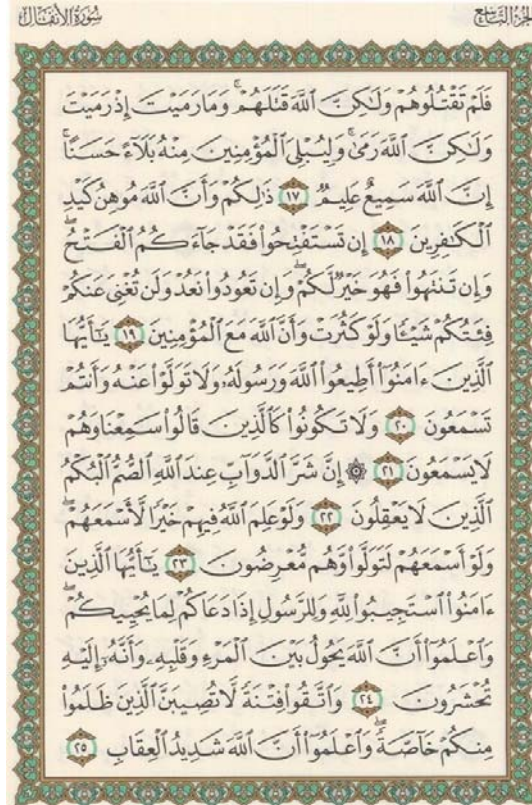 سُورَةُ الأَنفَال
الجُزءُ التَّاسِعُ
فَلَمْ تَقْتُلُوهُمْ وَلَٰكِنَّ ٱللَّهَ قَتَلَهُمْ ۚ وَمَا رَمَيْتَ إِذْ رَمَيْتَ
وَلَٰكِنَّ ٱللَّهَ رَمَىٰ ۚ وَلِيُبْلِىَ ٱلْمُؤْمِنِينَ مِنْهُ بَلَآءً حَسَنًا ۚ
إِنَّ ٱللَّهَ سَمِيعٌ عَلِيمٌ ١٧ ذَٰلِكُمْ وَأَنَّ ٱللَّهَ مُوهِنُ كَيْدِ
ٱلْكَٰفِرِينَ ١٨ إِن تَسْتَفْتِحُوا۟ فَقَدْ جَآءَكُمُ ٱلْفَتْحُ ۖ
وَإِن تَنتَهُوا۟ فَهُوَ خَيْرٌ لَّكُمْ ۖ وَإِن تَعُودُوا۟ نَعُدْ وَلَن تُغْنِىَ عَنكُمْ
فِئَتُكُمْ شَيْـًٔا وَلَوْ كَثُرَتْ وَأَنَّ ٱللَّهَ مَعَ ٱلْمُؤْمِنِينَ ١٩ يَٰٓأَيُّهَا
ٱلَّذِينَ ءَامَنُوٓا۟ أَطِيعُوا۟ ٱللَّهَ وَرَسُولَهُۥ وَلَا تَوَلَّوْا۟ عَنْهُ وَأَنتُمْ
تَسْمَعُونَ ٢٠ وَلَا تَكُونُوا۟ كَٱلَّذِينَ قَالُوا۟ سَمِعْنَا وَهُمْ
لَا يَسْمَعُونَ ٢١ ۞ إِنَّ شَرَّ ٱلدَّوَآبِّ عِندَ ٱللَّهِ ٱلصُّمُّ ٱلْبُكْمُ
ٱلَّذِينَ لَا يَعْقِلُونَ ٢٢ وَلَوْ عَلِمَ ٱللَّهُ فِيهِمْ خَيْرًا لَّأَسْمَعَهُمْ ۖ
وَلَوْ أَسْمَعَهُمْ لَتَوَلَّوا۟ وَّهُم مُّعْرِضُونَ ٢٣ يَٰٓأَيُّهَا ٱلَّذِينَ
ءَامَنُوا۟ ٱسْتَجِيبُوا۟ لِلَّهِ وَلِلرَّسُولِ إِذَا دَعَاكُمْ لِمَا يُحْيِيكُمْ ۖ
وَٱعْلَمُوٓا۟ أَنَّ ٱللَّهَ يَحُولُ بَيْنَ ٱلْمَرْءِ وَقَلْبِهِۦ وَأَنَّهُۥٓ إِلَيْهِ
تُحْشَرُونَ ٢٤ وَٱتَّقُوا۟ فِتْنَةً لَّا تُصِيبَنَّ ٱلَّذِينَ ظَلَمُوا۟
مِنكُمْ خَآصَّةً ۖ وَٱعْلَمُوٓا۟ أَنَّ ٱللَّهَ شَدِيدُ ٱلْعِقَابِ ٢٥